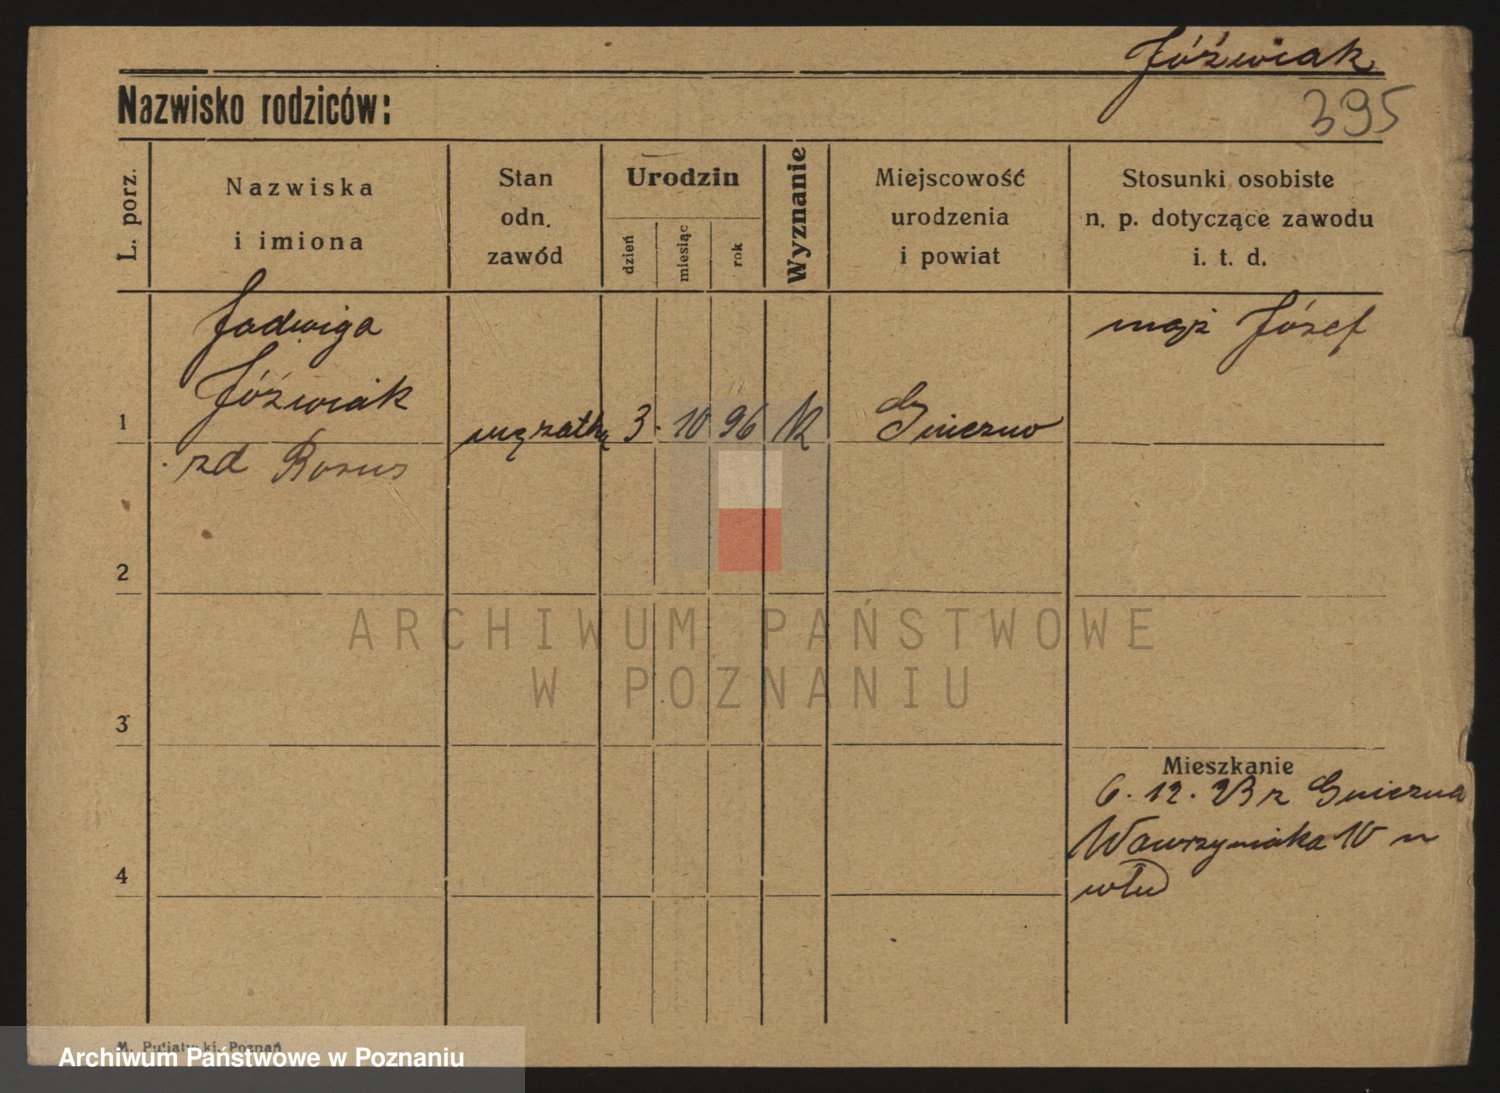 Jóźwiak
395
Nazwisko rodziców:
L. porz.
Nazwiska
i imiona
Stan
odn.
zawód
Urodzin
dzień
miesiąc
rok
Wyznanie
Miejscowość
urodzenia
i powiat
Stosunki osobiste
n. p. dotyczące zawodu
i. t. d.
Jadwiga
Jóźwiak
zd
mąż Józef
1
mężatka
3. 10 96
Gniezno
2
ARCHIWUM PAŃSTWOWE
W POZNANIU
3
Mieszkanie
6. 12. 23 z Gniezna
Wawrzyniaka 10
4
M. Poznań
Archiwum Państwowe w Poznaniu